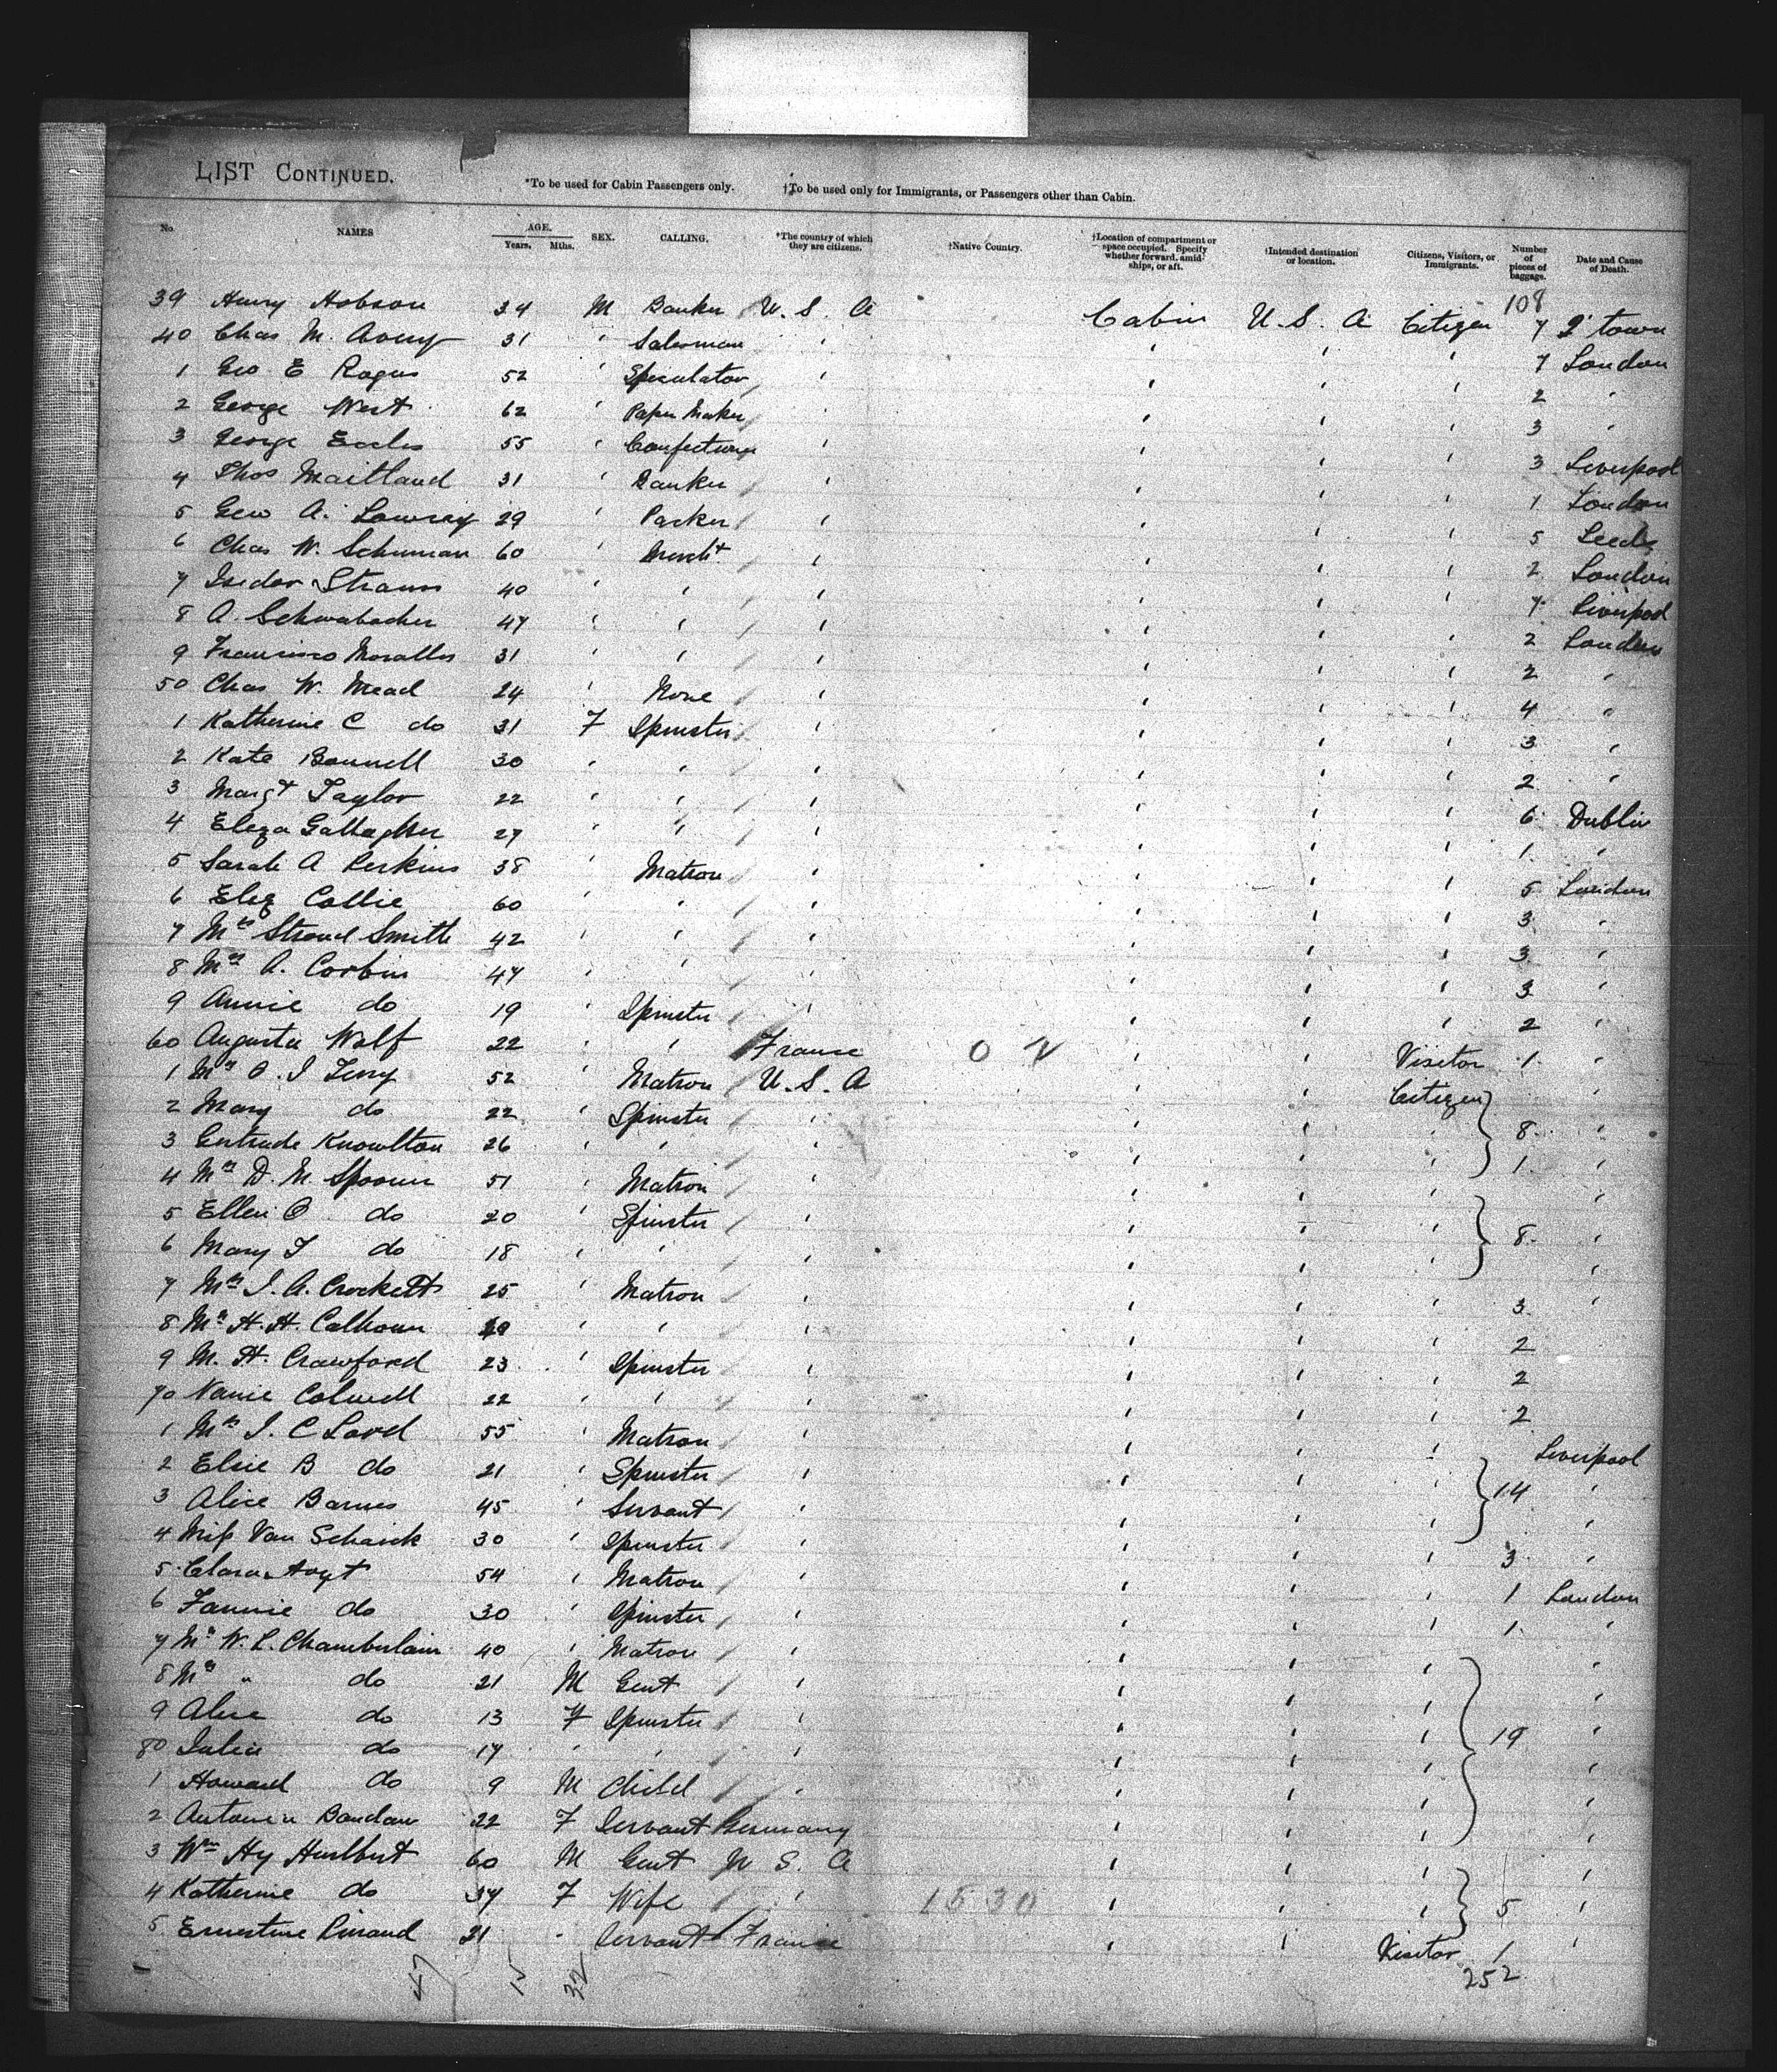 LIST CONTINUED.
*To be used for Cabin Passengers only. †To be used only for Immigrants, or Passengers other than Cabin.
No. NAMES AGE. Years. Mths. SEX. CALLING. *The country of which they are citizens. †Native Country. †Location of compartment or space occupied. Specify whether forward, amidships, or aft. †Intended destination or location. Citizens, Visitors, or Immigrants. Number of pieces of baggage. Date and Cause of Death.
108
39 Henry Hobson 34 M Banker U.S.A Cabin U.S.A Citizen 7 Q'town
40 Chas M. Avery 31 ' Salesman ' ' ' ' 7 London
1 Geo E Rogers 52 ' Speculator ' ' ' ' 2 '
2 George West 62 ' Paper Maker ' ' ' ' 3 '
3 George Eccles 55 ' Confectioner ' ' ' ' 3 Liverpool
4 Thos Maitland 31 ' Banker ' ' ' ' 1 London
5 Geo A. Lowrey 29 ' Packer ' ' ' ' 5 Leeds
6 Chas W. Schuman 60 ' Mercht ' ' ' ' 2 London
7 Isidor Straus 40 ' ' ' ' ' ' 7 Liverpool
8 A. Schwabacher 47 ' ' ' ' ' ' 2 London
9 Francisco Moralles 31 ' ' ' ' ' ' 2 '
50 Chas W. Mead 24 ' None ' ' ' ' 4 "
1 Katherine C do 31 F Spinster ' ' ' ' 3 '
2 Kate Bonnell 30 ' ' ' ' ' ' 2 '
3 Margt Taylor 22 ' ' ' ' ' ' 6 Dublin
4 Eliza Gallagher 27 ' ' ' ' ' ' 1 '
5 Sarah A Perkins 38 ' Matron ' ' ' ' 5 London
6 Eliz Collie 60 ' ' ' ' ' ' 3 '
7 Mrs Stroud Smith 42 ' ' ' ' ' ' 3 '
8 Mrs A. Corbin 47 ' ' ' ' ' ' 3 '
9 Annie do 19 ' Spinster ' ' ' ' 2 '
60 Augusta Wolf 22 ' ' France ' ' Visitor 1 '
1 Mrs O. I Terry 52 ' Matron U.S.A ' ' Citizen '
2 Mary do 22 ' Spinster ' ' ' ' 8 '
3 Gertrude Knowlton 26 ' ' ' ' ' ' 1 '
4 Mrs D. M. Spooner 51 ' Matron ' ' ' ' '
5 Ellen O do 20 ' Spinster ' ' ' ' 8 '
6 Mary T do 18 ' ' ' ' ' ' '
7 Mrs I. A. Crockett 25 ' Matron ' ' ' ' 3 '
8 Mrs H. H. Calhoun ' ' ' ' ' ' 2
9 M. H. Crawford 23 ' Spinster ' ' ' ' 2
70 Nanie Colwell 22 ' ' ' ' ' ' 2
1 Mrs I. C Lord 55 ' Matron ' ' ' ' Liverpool
2 Elsie B do 21 ' Spinster ' ' ' ' 14 '
3 Alice Barnes 45 ' Servant ' ' ' ' '
4 Miss Van Schaick 30 ' Spinster ' ' ' ' 3 '
5 Clara Hoyt 54 ' Matron ' ' ' ' 1 London
6 Fannie do 30 ' Spinster ' ' ' ' 1 '
7 Mrs W. L. Chamberlain 40 ' Matron ' ' ' ' '
8 Mr " do 21 M Gent ' ' ' ' '
9 Alice do 13 F Spinster ' ' ' ' 19 '
80 Julia do 17 ' ' ' ' ' ' '
1 Howard do 9 M Child ' ' ' ' '
2 22 F Servant Germany ' ' ' '
3 Wm Hy Hurlbert 60 M Gent U S. A ' ' ' '
4 Katherine do 37 F Wife ' 1530 ' ' ' 5 '
5 Ernestine 21 - Servant France ' ' Visitor 1 '
47 15 32 252